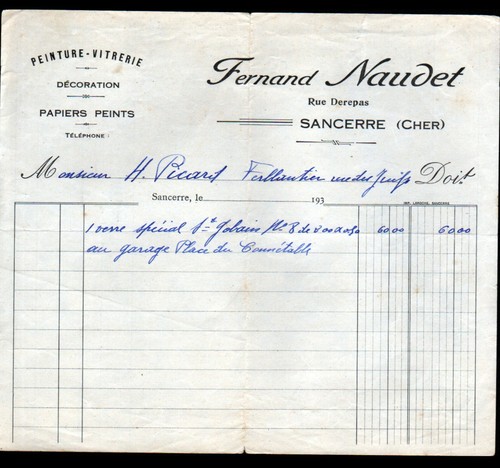 PEINTURE-VITRERIE
DÉCORATION
PAPIERS PEINTS
TÉLÉPHONE:
Fernand Naudet
Rue Derepas
SANCERRE (CHER)
Monsieur H. Picard Ferblantier rue des Juifs Doit
Sancerre, le 193
IMP. LAROCHE, SANCERRE
1 verre spécial St Gobain No 8 de 2 00 x 0,50 60 00 60 00
au garage Place du Connétable